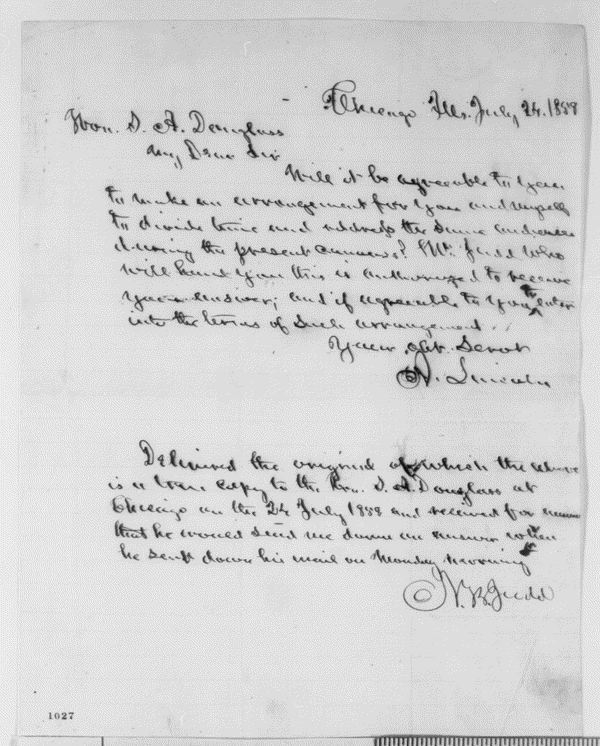 Chicago Ills. July 24. 1858
Hon. S. A. Douglass
My Dear Sir
Will it be agreeable to you
to make an arrangement for you and myself
to divide time and address the same audiences
during the present canvass? Mr. Judd who
will hand you this is authorized to receive
your answer; and if agreeable to you to enter
into the terms of such arrangement.
Your Obt. Servt
A. Lincoln
Delivered the original of which the above
is a true copy to the Hon. S. A. Douglass at
Chicago on the 24 July 1858 and received for answer
that he would send me down an answer when
he sent down his mail on Monday morning
N. B. Judd
1027